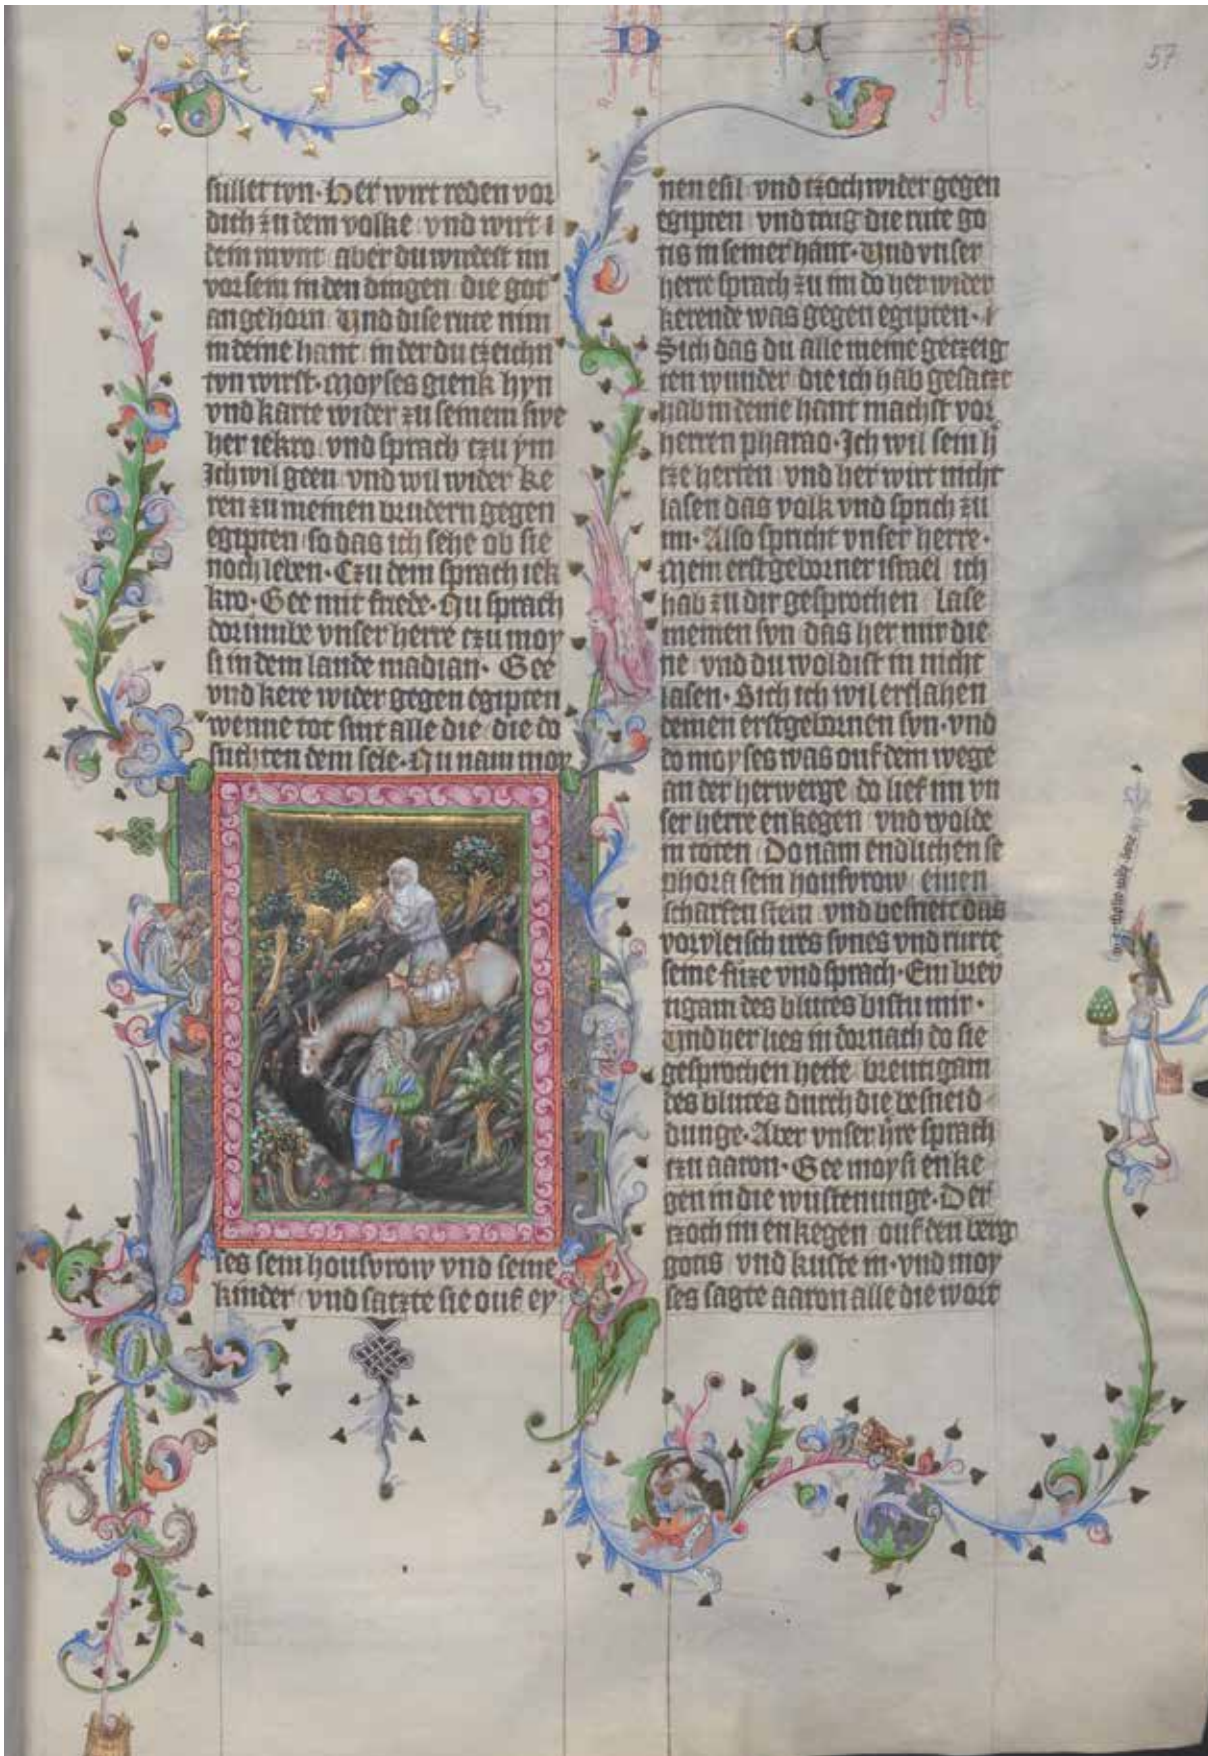 E X O D U S
57
sullet tvn · Her wirt reden vor
dich zu dem volke vnd wirt i
dem mvnt aber du wirdest im
vor sein in den dingen die got
angehorn Und dise rute nim
in deine hant in der du czeichn
tvn wirst · Moyses gienk hyn
vnd karte wider zu seinem swe
her iekro vnd sprach czu ym
Ich wil geen vnd wil wider ke
ren zu meinen brudern gegen
egipten so das ich sehe ob sie
noch leben · Czu dem sprach iek
kro · Gee mit frede · Nu sprach
dorumbe vnser herre czu moy
si in dem lande madian · Gee
vnd kere wider gegen egipten
wenne tot sint alle die die do
suchten dem sele · Nu nam moy
ses sein housvrow vnd seine
kinder vnd satzte sie ouf ey
nen esil vnd czoch wider gegen
egipten vnd trug die rute go
tis in seiner hant · Und vnser
herre sprach zu im do her wider
kerende was gegen egipten ·
Sich das du alle meine geczeig
ten wunder die ich hab gesatzt
hab in deine hant machst vor
herren pharao · Ich wil sein h
tze herten vnd her wirt nicht
lasen das volk vnd sprich zu
im · Also spricht vnser herre ·
Mein erstgeborner israel ich
hab zu dir gesprochen lase
meinen svn das her mir die
ne vnd du woldist in nicht
lasen · Sich ich wil erslahen
deinen erstgebornen svn · vnd
do moyses was ouf dem wege
an der herwerge do lief im vn
ser herre enkegen vnd wolde
in toten Do nam endlichen se
phora sein housvrow einen
scharfen stein vnd besneit das
vorvleisch ires svnes vnd rurte
seine fuze vnd sprach · Ein brev
tigam des blutes bistu mir ·
Und her lies in dornach do sie
gesprochen hette breutigam
des blutes durch die besneid
dunge · Aber vnser hre sprach
czu aaron · Gee moysi enke
gen in die wustenunge · Der
czoch im enkegen ouf den berg
gotis vnd kuste in · vnd moy
ses sagte aaron alle die wort